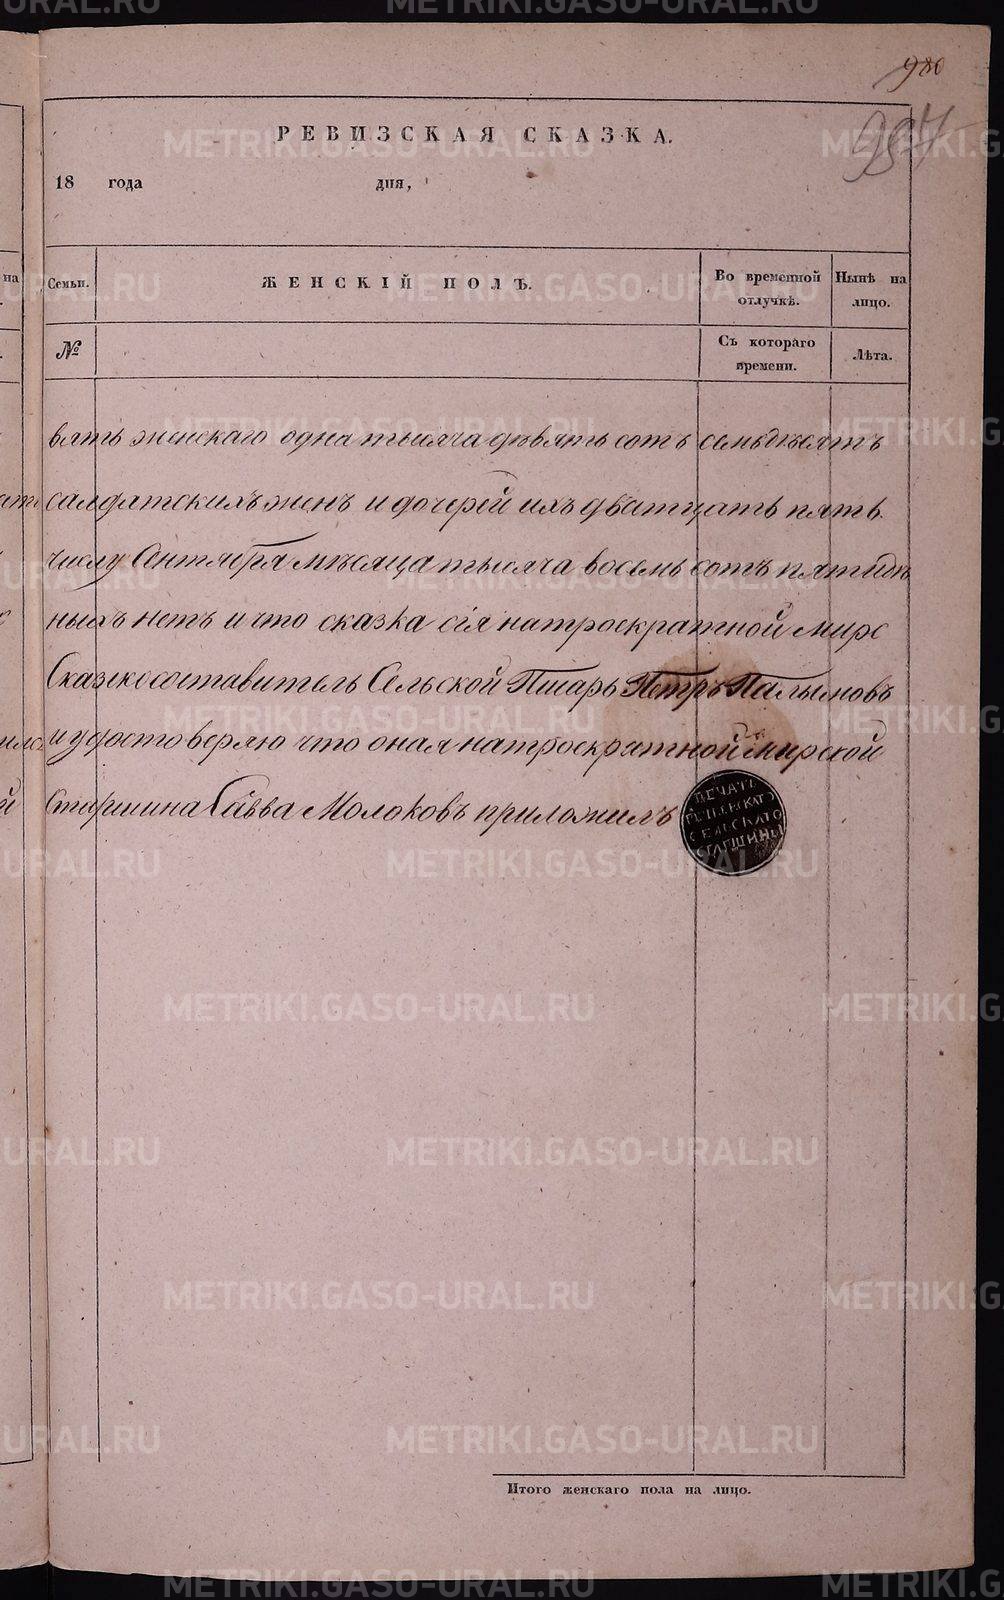 980
997
РЕВИЗСКАЯ СКАЗКА.
18 года дня,
Семьи. ЖЕНСКІЙ ПОЛЪ. Во временной отлучкѣ. Нынѣ на лицо.
№ Съ котораго времени. Лѣта.
вять женскаго одна тысяча дѣвять сотъ семьдѣсятъ
салдатскихъ женъ и дочерей ихъ дватцать пять
числу Сентября мѣсяца тысяча восемь сотъ пятидѣ
ныхъ нетъ и что сказка сія на троекратной мирс
Сказкосоставитель Сельской Писарь Петръ Палымовъ
и удостоверяю что оная на троекратной мирской
Старшина Савва Молоковъ приложилъ
ПЕЧАТЬ
СЕЛЬСКАГО
СТАРШИНЫ
Итого женскаго пола на лицо.
METRIKI.GASO-URAL.RU